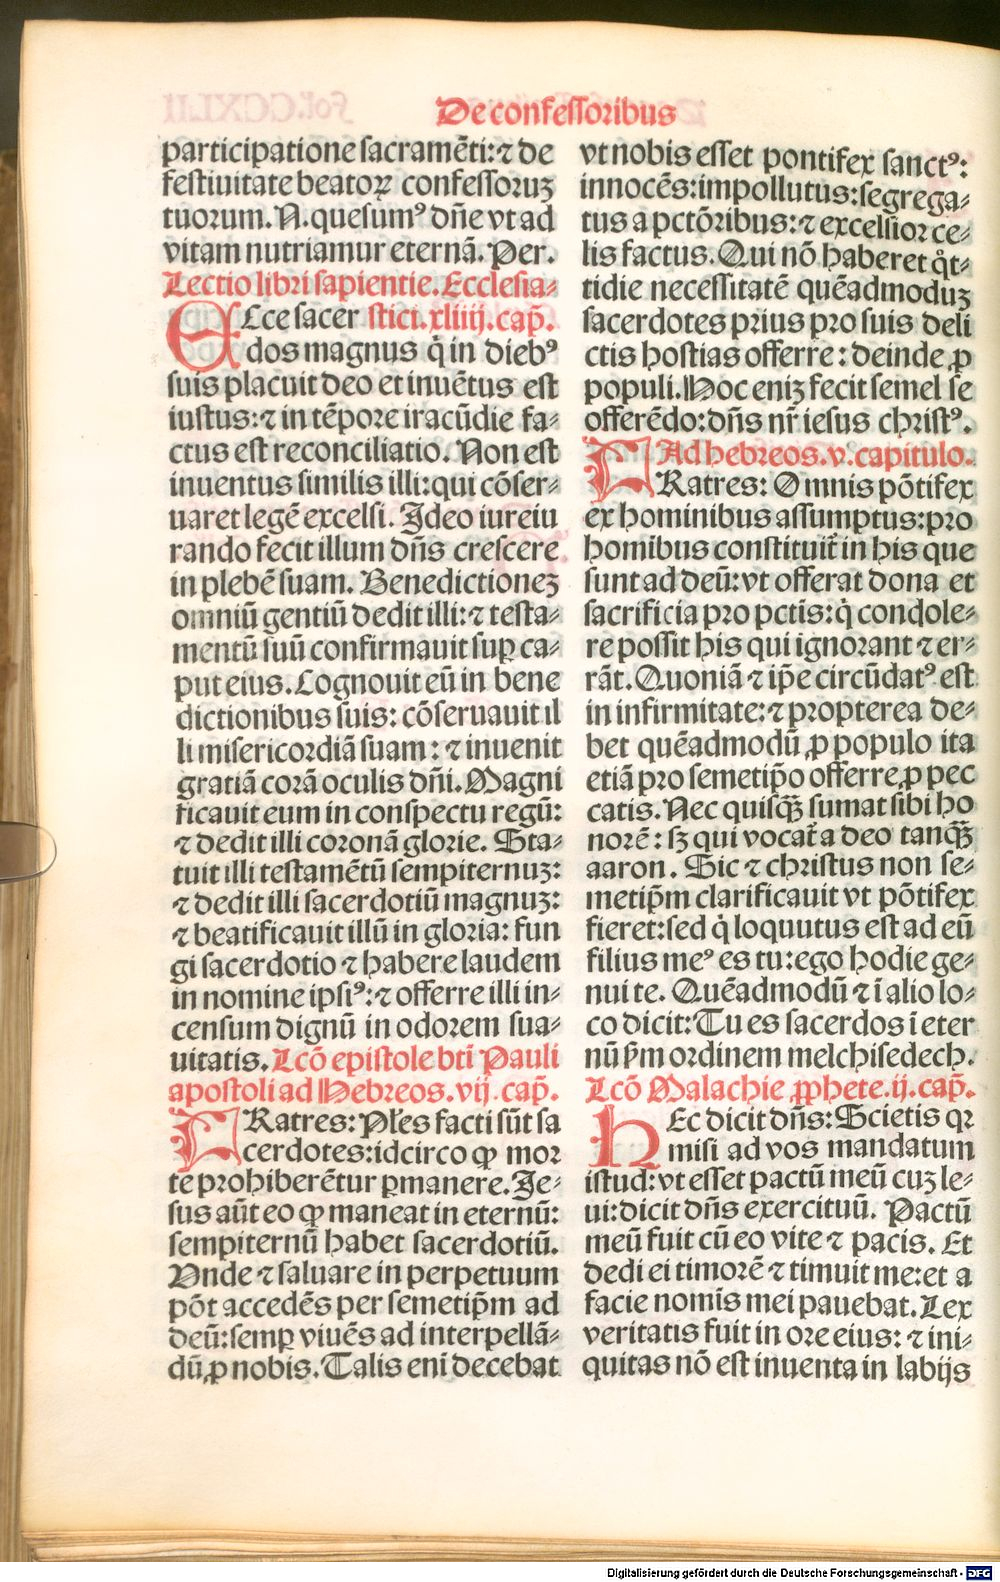 De confessoribus
participatione sacramēti: ⁊ de
festiuitate beatoꝝ confessoruꝫ
tuorum. N. quesumꝰ dn̄e vt ad
vitam nutriamur eternā. Per.
Lectio libri sapientie. Ecclesia⸗
ECce sacer stici. xliiij. cap̄.
dos magnus q̇ in diebꝰ
suis placuit deo et inuētus est
iustus: ⁊ in tēpore iracūdie fa⸗
ctus est reconciliatio. Non est
inuentus similis illi: qui cōser⸗
uaret legē excelsi. Ideo iureiu
rando fecit illum dn̄s crescere
in plebē suam. Benedictioneꝫ
omniū gentiū dedit illi: ⁊ testa⸗
mentū suū confirmauit suꝑ ca⸗
put eius. Cognouit eū in bene
dictionibus suis: cōseruauit il
li misericordiā suam: ⁊ inuenit
gratiā corā oculis dn̄i. Magni
ficauit eum in conspectu regū:
⁊ dedit illi coronā glorie. Sta⸗
tuit illi testamētū sempiternuꝫ:
⁊ dedit illi sacerdotiū magnuꝫ:
⁊ beatificauit illū in gloria: fun
gi sacerdotio ⁊ habere laudem
in nomine ipsiꝰ: ⁊ offerre illi in⸗
censum dignū in odorem sua⸗
uitatis. Lcō epistole bt̄i Pauli
apostoli ad Hebreos. vij. cap̄.
FRatres: Pl̄es facti sūt sa
cerdotes: idcirco ꝙ mor
te prohiberētur ꝑmanere. Je⸗
sus aūt eo ꝙ maneat in eternū:
sempiternū habet sacerdotiū.
Vnde ⁊ saluare in perpetuum
pōt accedēs per semetip̄m ad
deū: semꝑ viuēs ad interpellā⸗
dū ꝓ nobis. Talis eni decebat
vt nobis esset pontifex sanctꝰ:
innocēs: impollutus: segrega⸗
tus a pctōribus: ⁊ excelsior ce⸗
lis factus. Qui nō haberet q̊t⸗
tidie necessitatē quēadmoduꝫ
sacerdotes prius pro suis deli
ctis hostias offerre: deinde ꝓ
populi. Hoc eniꝫ fecit semel se
offerēdo: dn̄s nr̄ iesus christꝰ.
Ad hebreos. v. capitulo.
FRatres: Omnis pōtifex
ex hominibus assumptus: pro
homibus constituit̄ in his que
sunt ad deū: vt offerat dona et
sacrificia pro pctis: q̇ condole⸗
re possit his qui ignorant ⁊ er⸗
rāt. Quoniā ⁊ ip̄e circūdatꝰ est
in infirmitate: ⁊ propterea de⸗
bet quēadmodū ꝓ populo ita
etiā pro semetip̄o offerre ꝓ pec
catis. Nec quisꝗ̄ sumat sibi ho
norē: sꝫ qui vocat̄ a deo tanꝗ̄
aaron. Sic ⁊ christus non se⸗
metip̄m clarificauit vt pōtifex
fieret: sed q̇ loquutus est ad eū
filius meꝰ es tu: ego hodie ge⸗
nui te. Quēadmodū ⁊ ī alio lo⸗
co dicit: Tu es sacerdos ī eter
nū ẜm ordinem melchisedech.
Lcō Malachie ꝓphete. ij. cap̄.
HEc dicit dn̄s: Scietis qꝛ
misi ad vos mandatum
istud: vt esset pactū meū cuꝫ le⸗
ui: dicit dn̄s exercituū. Pactū
meū fuit cū eo vite ⁊ pacis. Et
dedi ei timorē ⁊ timuit me: et a
facie nomīs mei pauebat. Lex
veritatis fuit in ore eius: ⁊ ini⸗
quitas nō est inuenta in labijs
Digitalisierung gefördert durch die Deutsche Forschungsgemeinschaft - DFG